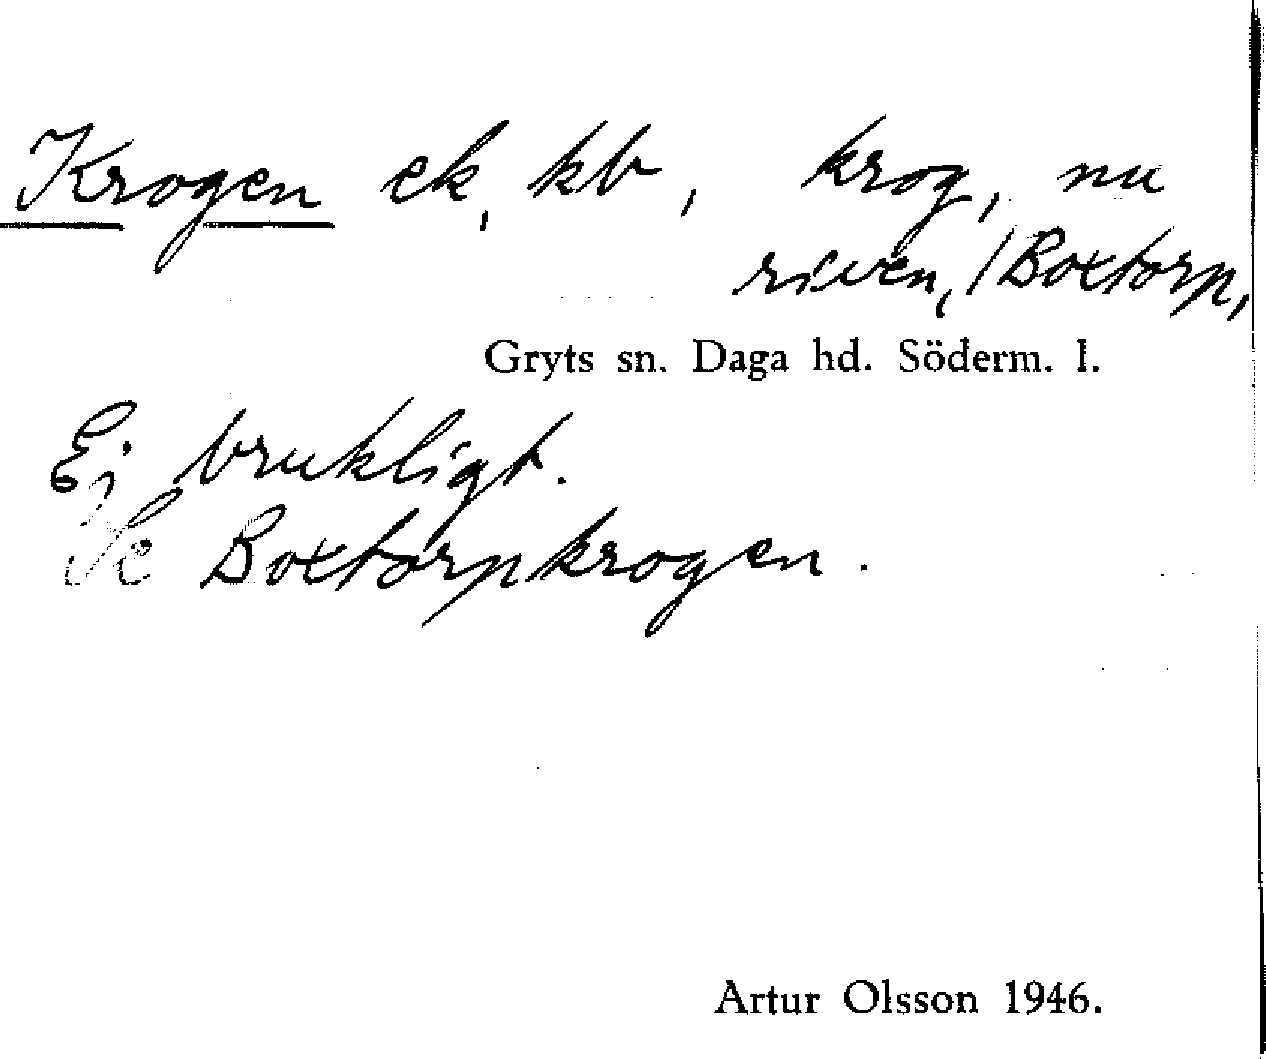 Krogen ek, kb, krog, nu
riven, /Boxtorp,
Gryts sn. Daga hd. Söderm. l.
Ej brukligt.
Se Boxtorpkrogen.
Artur Olsson 1946.